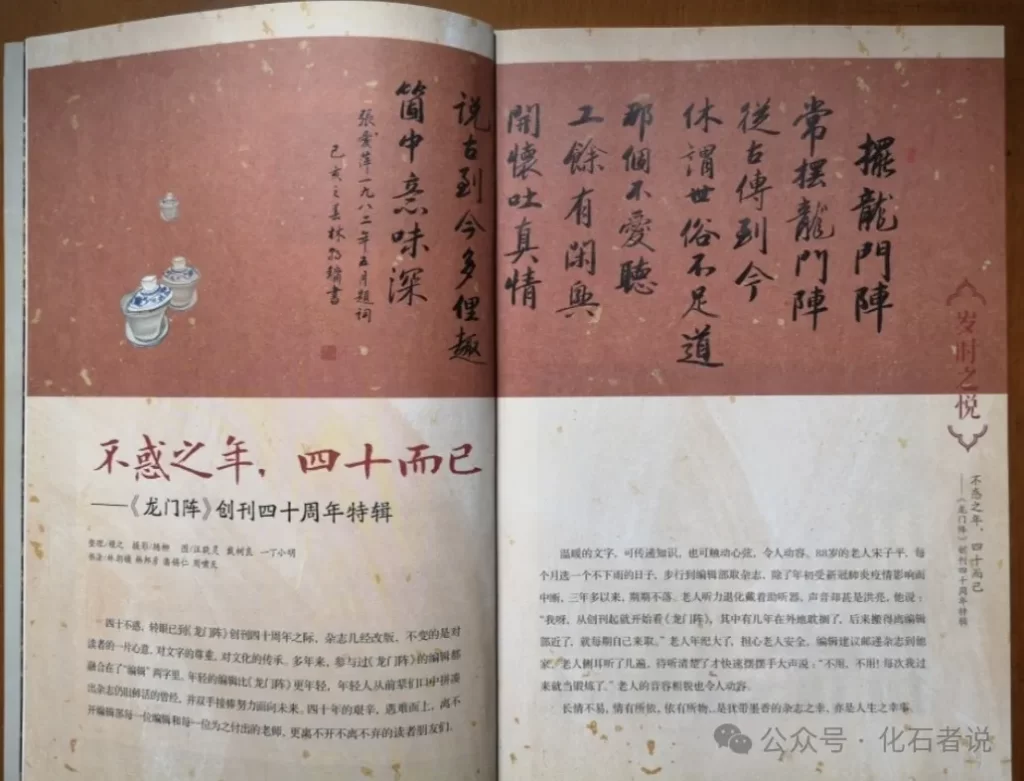 擺龍門陣
常摆龍門陣
從古傳到今
休謂世俗不足道
那個不愛聽
工餘有閑興
開懷吐真情
说古到今多俚趣
箇中意味深
張愛萍一九八二年五月題词
己亥之春林
書
不惑之年，四十而已
——《龙门阵》创刊四十周年特辑
四十不惑，转眼已到《龙门阵》创刊四十周年之际，杂志几经改版，不变的是对
读者的一片心意、对文字的尊重、对文化的传承。多年来，参与过《龙门阵》的编辑都
融合在了“编辑”两字里。年轻的编辑比《龙门阵》更年轻，年轻人从前辈们口中拼凑
出杂志仍旧鲜活的曾经，并双手接棒努力面向未来。四十年的艰辛，遇难而上，离不
开编辑部每一位编辑和每一位为之付出的老师，更离不开不离不弃的读者朋友们。
温暖的文字，可传递知识，也可触动心弦，令人动容。88岁的老人宋子平，每
个月选一个不下雨的日子，步行到编辑部取杂志，除了年初受新冠肺炎疫情影响而
中断，三年多以来，期期不落。老人听力退化戴着助听器，声音却甚是洪亮，他说：
“我呀，从创刊起就开始看《龙门阵》，其中有几年在外地耽搁了，后来搬得离编辑
部近了，就每期自己来取。”老人年纪大了，担心老人安全，编辑建议邮递杂志到他
家，老人侧耳听了几遍，待听清楚了才快速摆摆手大声说：“不用，不用！每次我过
来就当锻炼了。”老人的音容相貌也令人动容。
长情不易，情有所依，依有所物…是犹带墨香的杂志之幸，亦是人生之幸事。
岁时之悦
不惑之年，四十而已
——《龙门阵》创刊四十周年特辑
公众号·化石者说